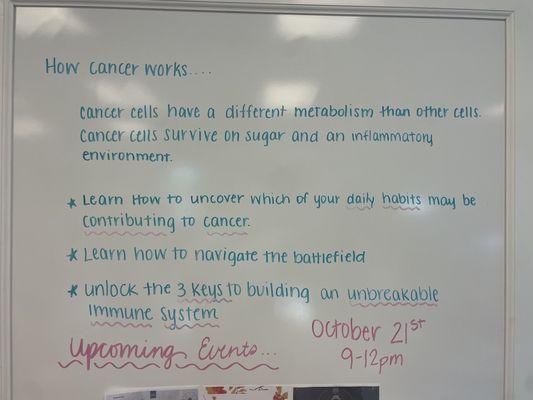 How cancer works....
cancer cells have a different metabolism than other cells.
Cancer cells survive on sugar and an inflammatory
environment.
* Learn How to uncover which of your daily habits may be
contributing to cancer.
* Learn how to navigate the battlefield
* unlock the 3 keys to building an unbreakable
immune system
October 21st
9-12pm
Upcoming Events...